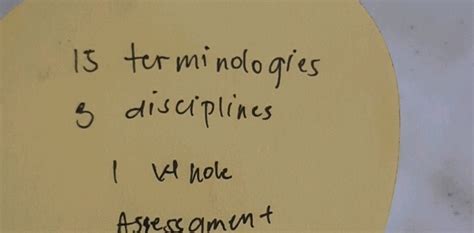 15 terminologies
3 disciplines
1 whole
Assessament